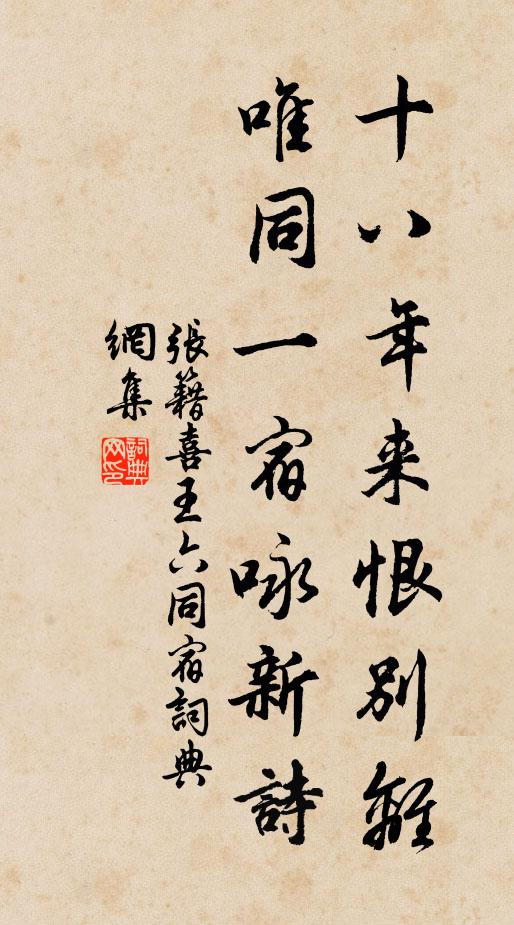 十八年来恨別離
唯同一宿咏新詩
張籍喜王六同宿詞典
網集
詞典
网印